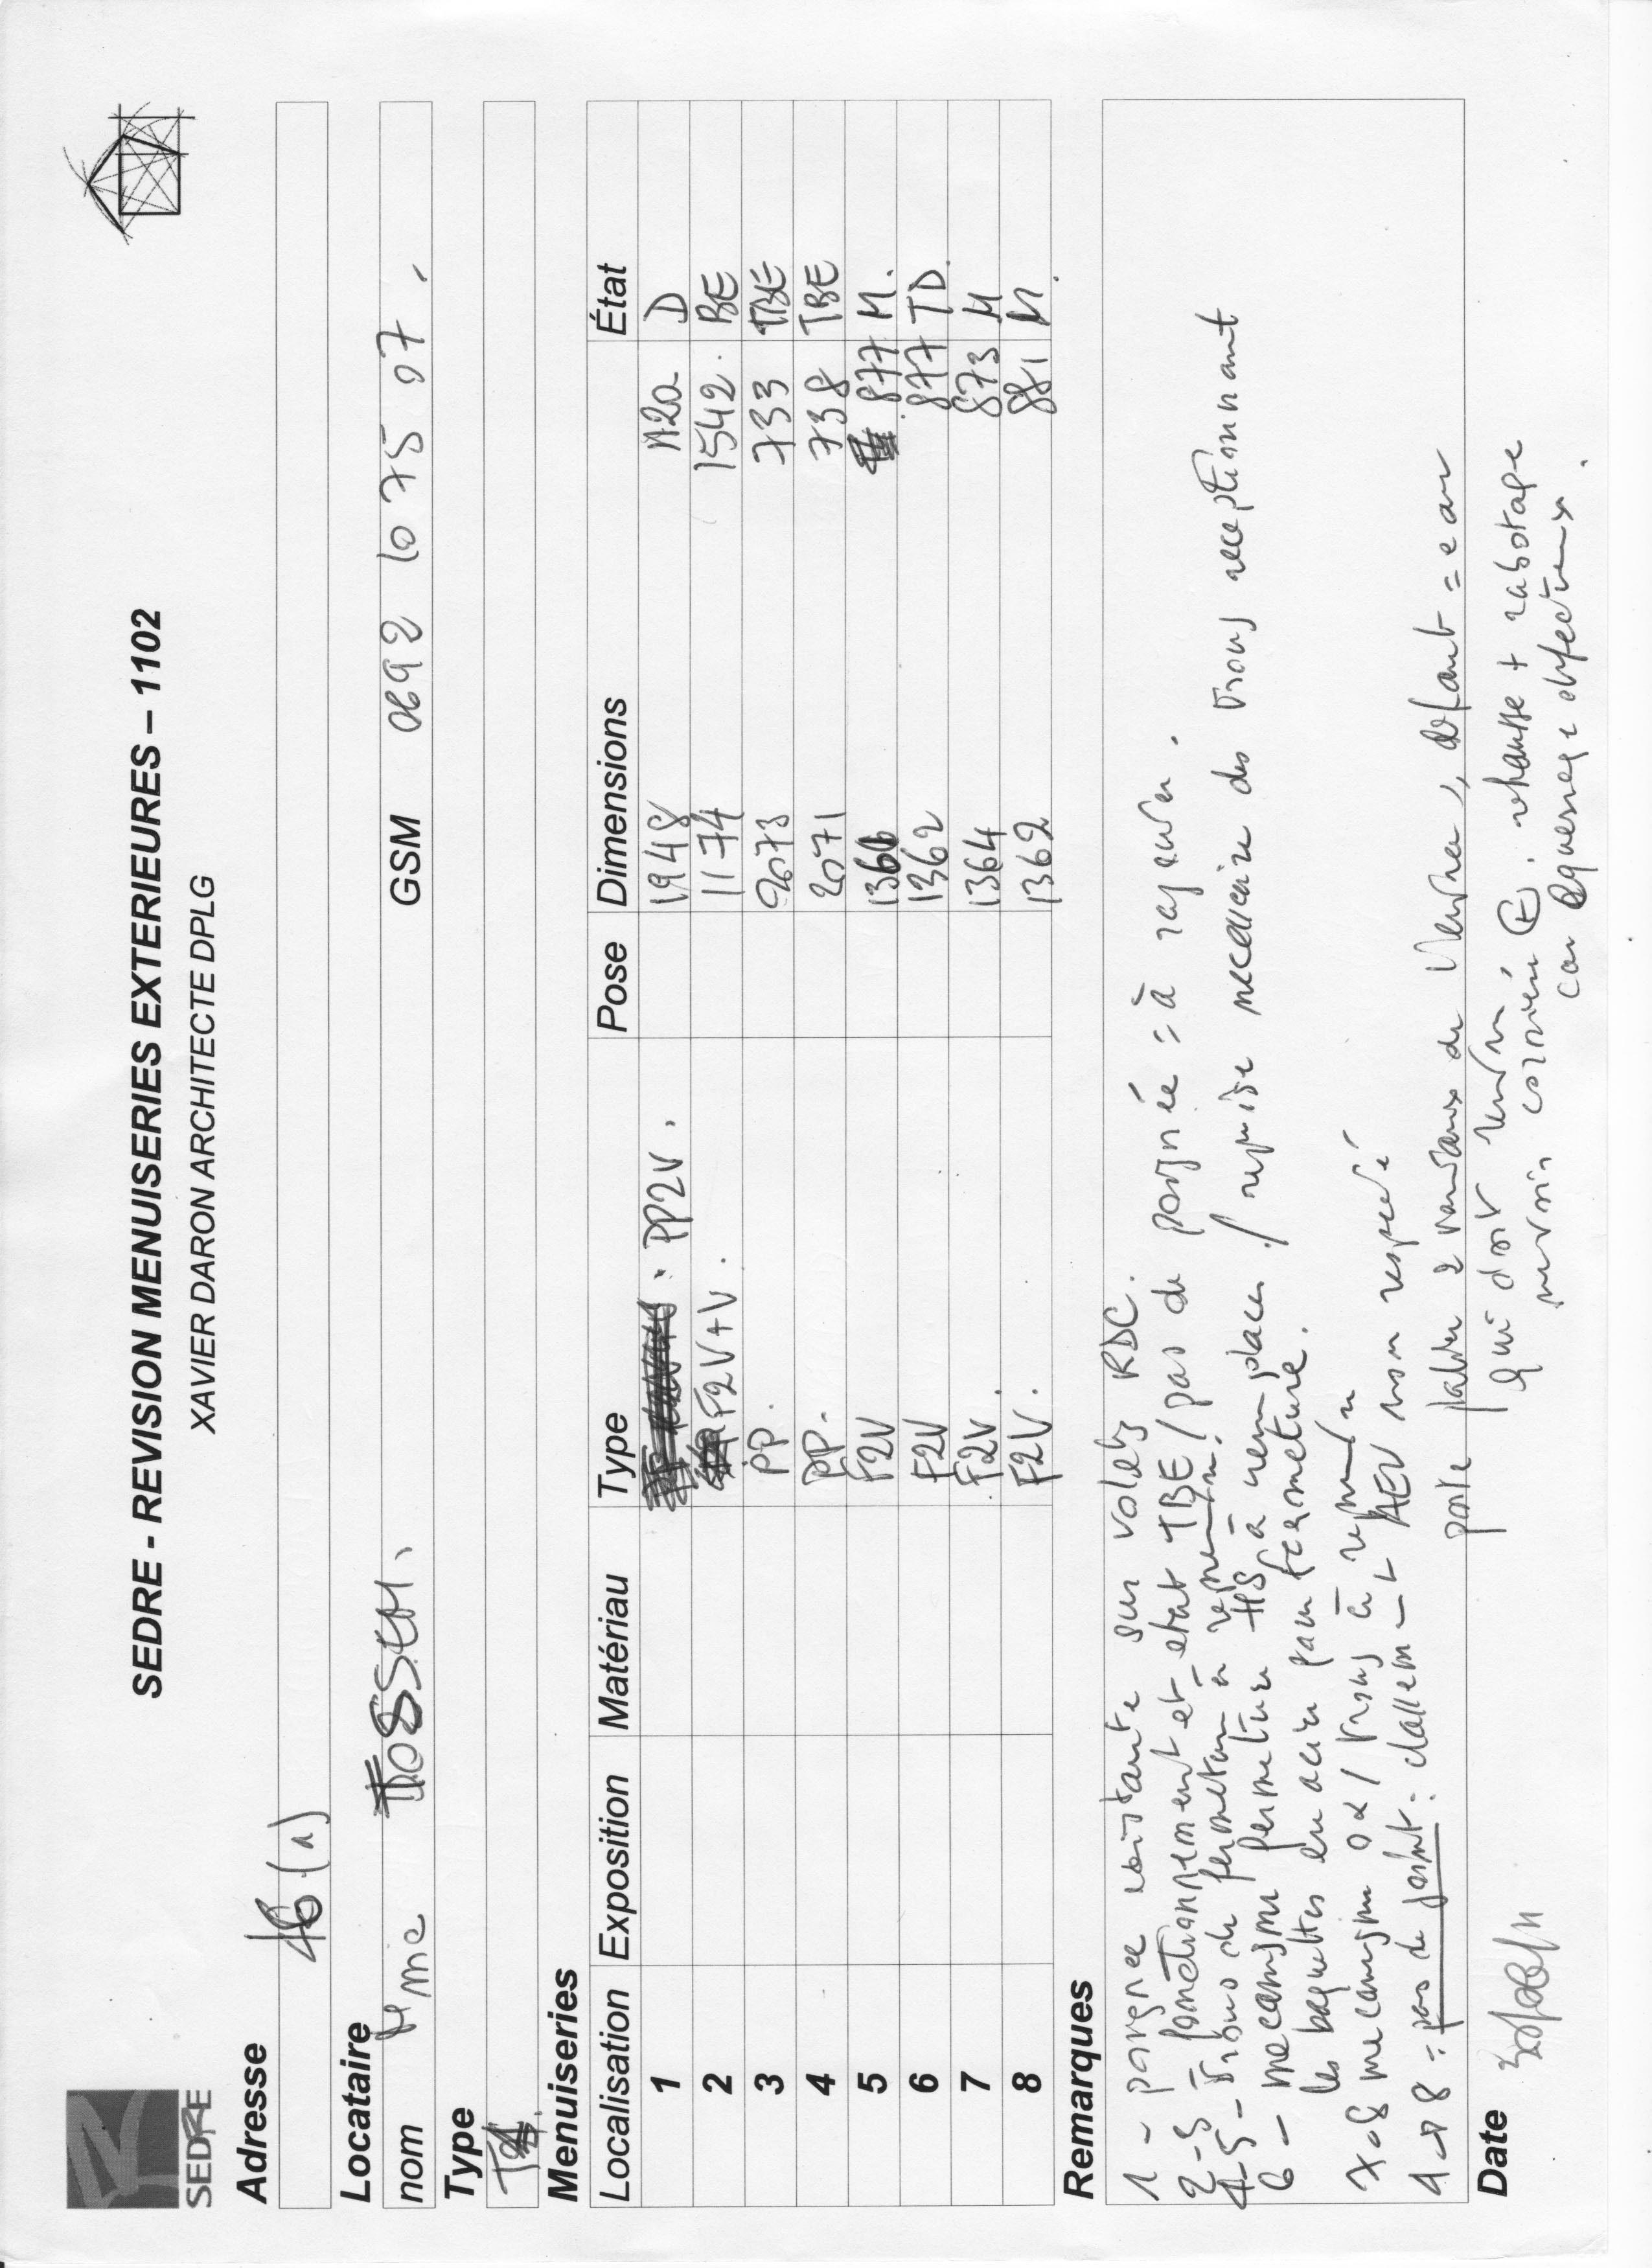 SEDRE
SEDRE - REVISION MENUISERIES EXTERIEURES – 1102
XAVIER DARON ARCHITECTE DPLG
Adresse
46 (1)
Locataire
nom Mme GSM 0692 10 75 07.
Type
Menuiseries
Localisation Exposition Matériau Type Pose Dimensions État
1 PP2V. 1948 1120 D
2 F2V+V. 1174 1542. BE
3 PP. 2073 733 TBE
4 PP. 2071 738 TBE
5 F2V 1366 877 M.
6 F2V 1362 877 TD.
7 F2V. 1364 873 M
8 F2V. 1362 881 M.
Remarques
1 - poignee existante sur volets RDC.
2-3 fonctionnement et etat TBE / pas de poignée = à rajouter.
4-5 - de fermeture à reprendre.
6 - mecanisme fermeture HS à remplacer / reprise necessaire des trous receptionnant
les baguettes en acier pour fermeture.
7-8 mecanisme ok / trous à reprendre
1-8 = pas de joint: AEV non respecté
porte 2 vantaux de defaut = eau
qui doit . rehausse + rabotage
car equerrage defectueux.
Date